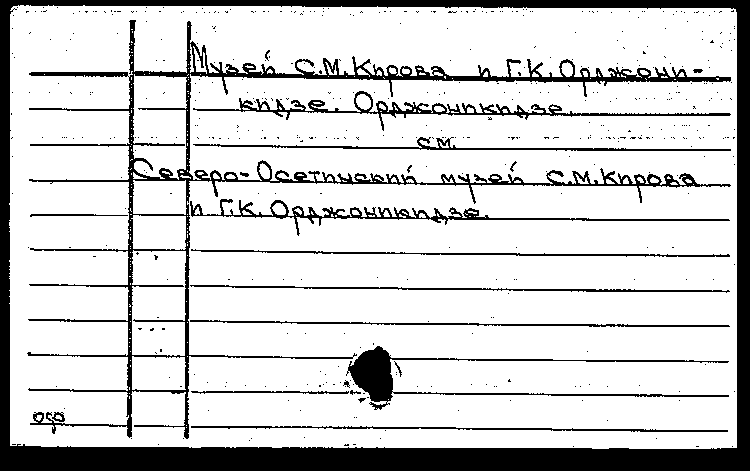 Музей С.М.Кирова и Г.К.Орджони-
кидзе. Орджоникидзе.
см.
Северо-Осетинский музей С.М.Кирова
и Г.К. Орджоникидзе.
оф